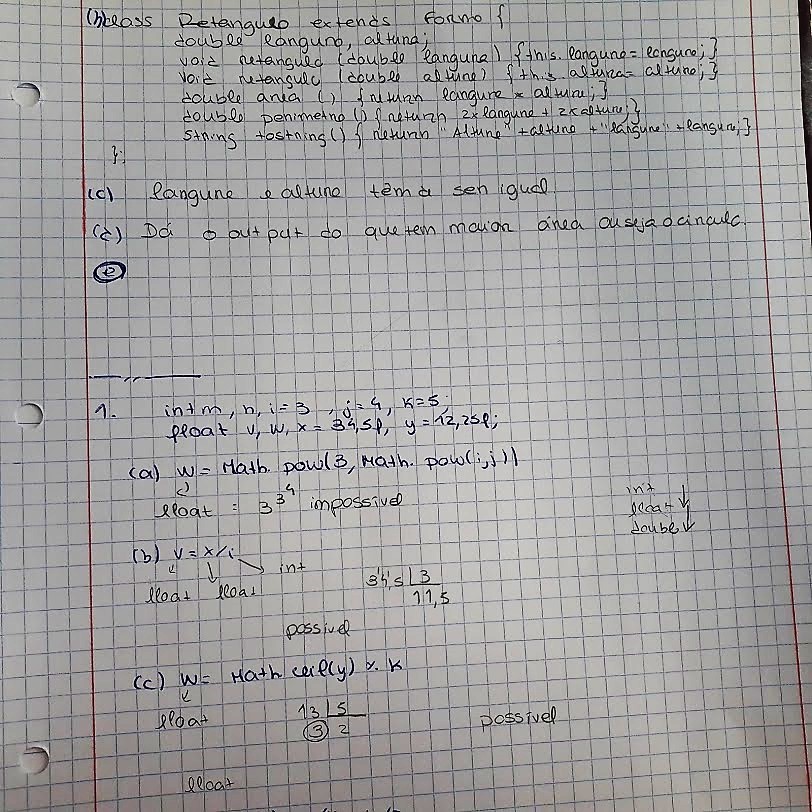 (b) class Retangulo extends Forma {
double largura, altura;
void retangulo (double largura) {this.largura = largura;}
void retangulo (double altura) {this.altura = altura;}
double area () {return largura * altura;}
double perimetro () {return 2xlargura + 2xaltura;}
String tostring() { return "Altura" + altura + "largura" + largura;}
};
(c) largura e altura têm de ser igual
(d) Dá o output do que tem maior área ou seja o circulo.
(e)
1. int m, n, i = 3, j = 4, k = 5;
float v, w, x = 34,5f, y = 12,25f;
(a) w = Math.pow(3, Math.pow(i,j))
float : 3 3 4 impossivel
int
float
double
(b) v = x/i
float float int
34,5 | 3
11,5
possivel
(c) w = Math ceil(y) % k
float
13 | 5
3 2
possivel
float